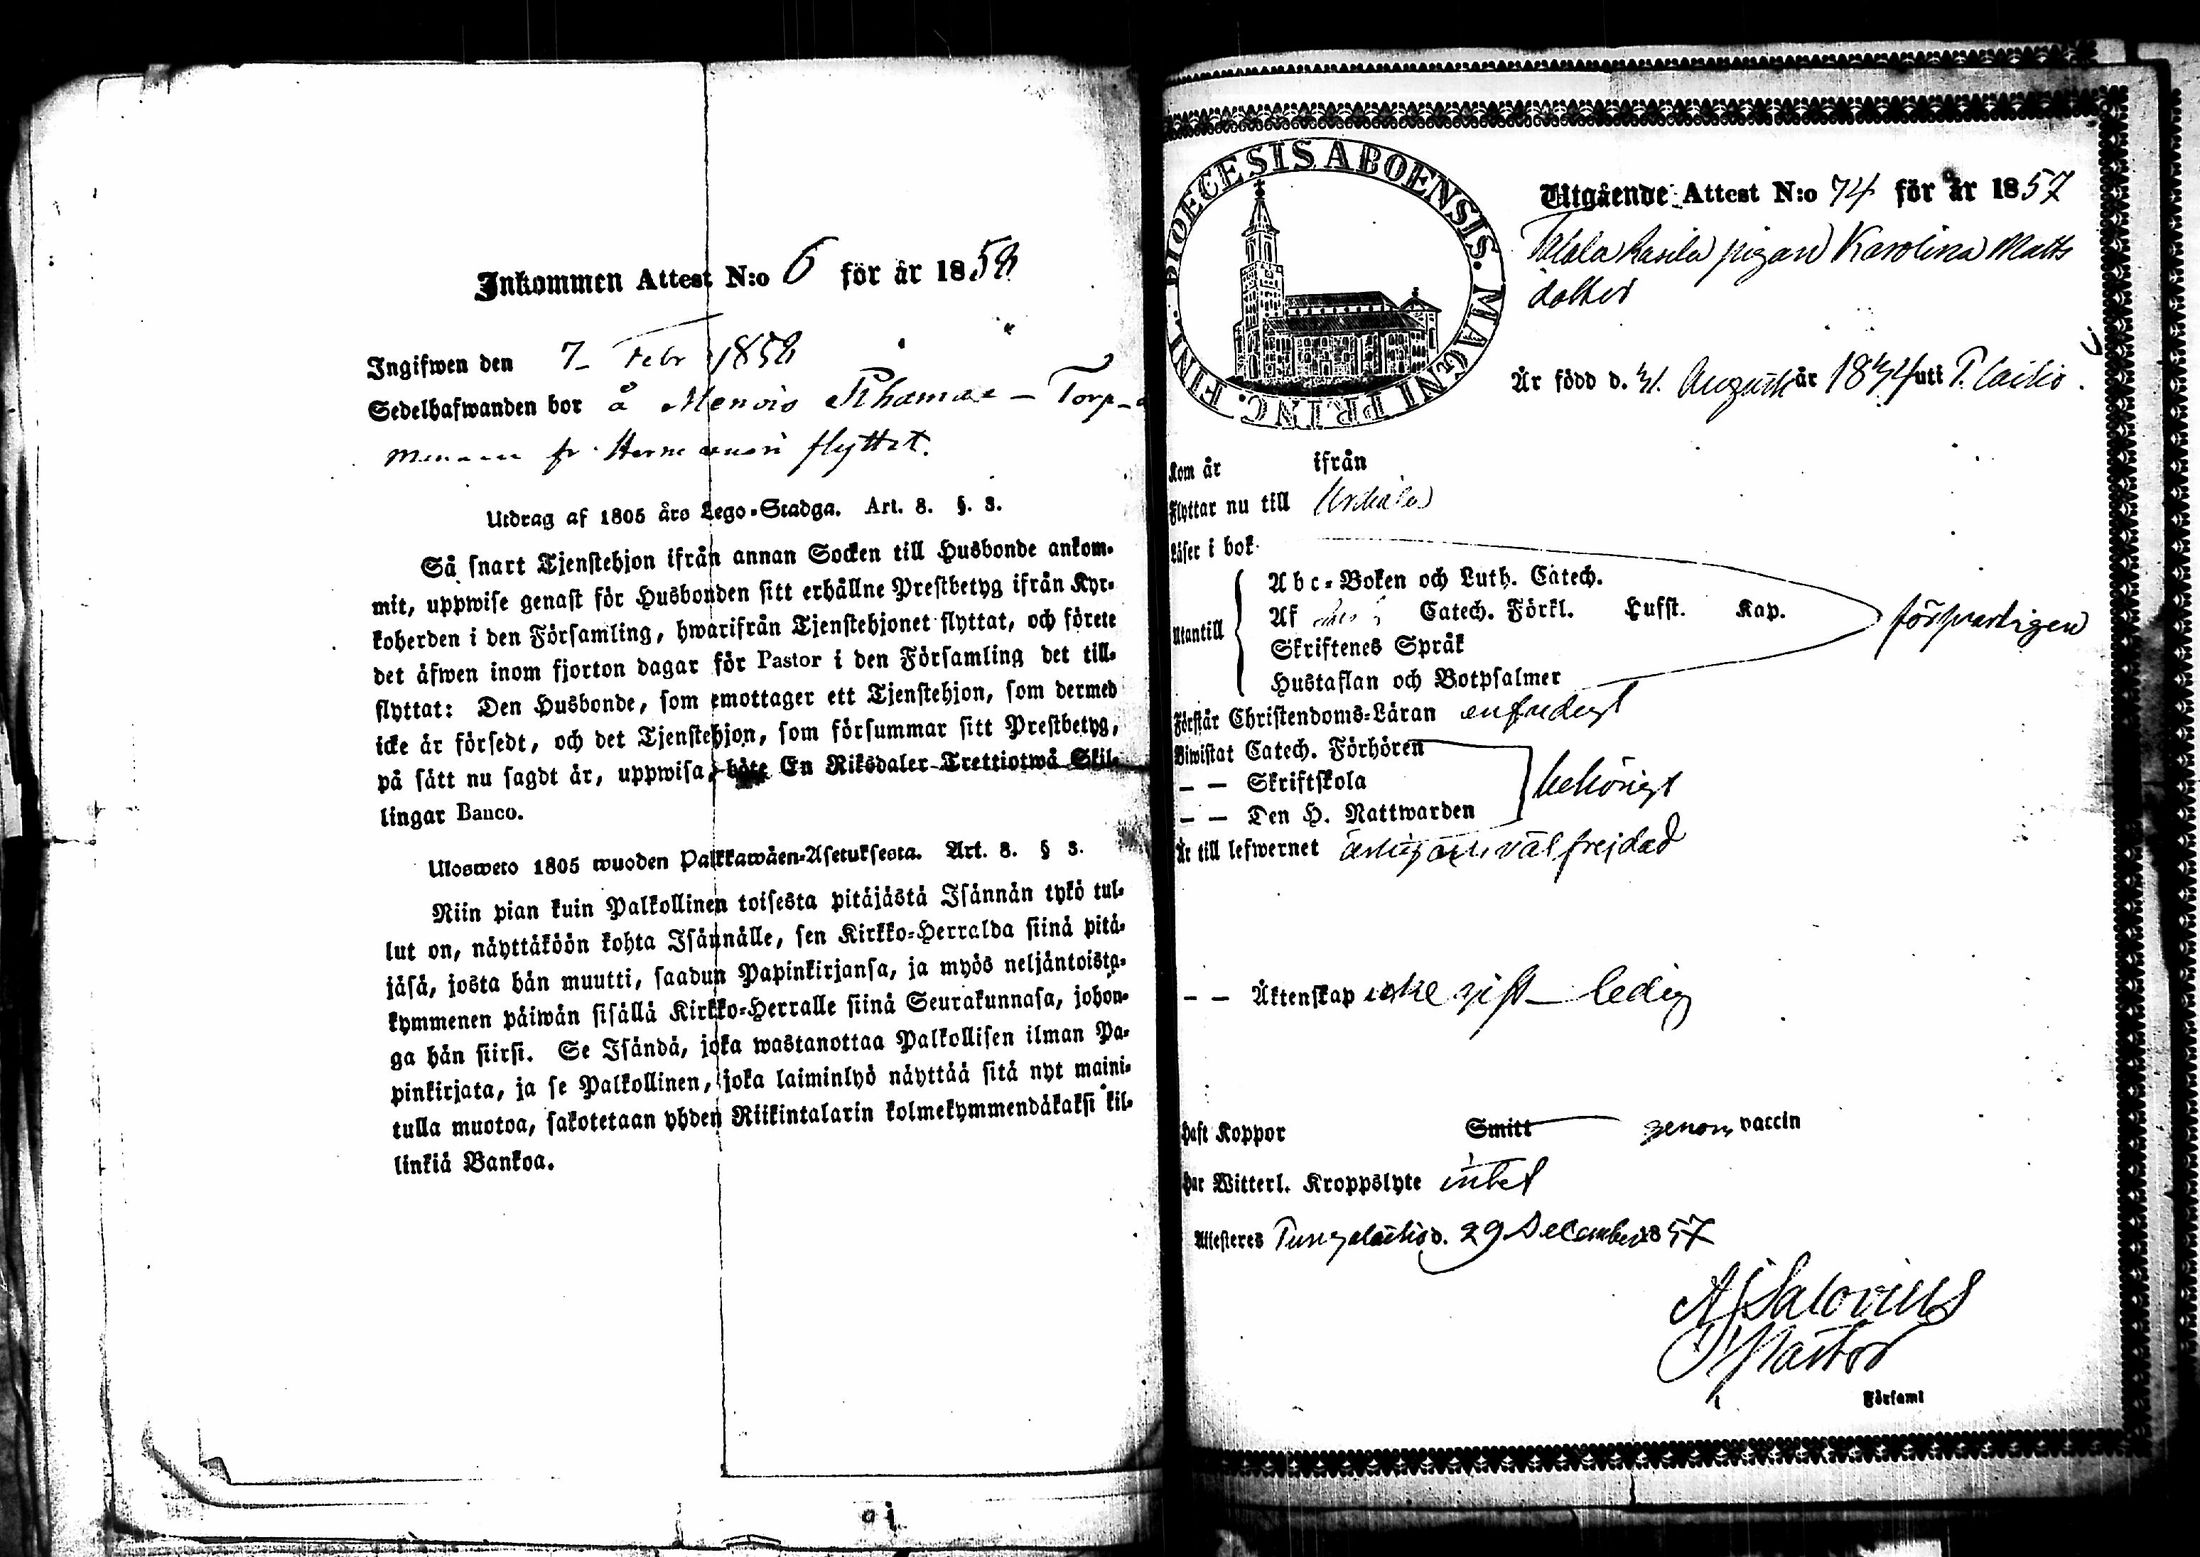 Inkommen Attest N:o 6 för år 1858
Ingifwen den 7 Febr 1858
Sedelhafwanden bor å Menois Torp
fr. flyttat.
Utdrag af 1805 års Lego-Stadga. Art. 8. §. 3.
Så snart Tjenstehjon ifrån annan Socken till Husbonde ankom-
mit, uppwise genast för Husbonden sitt erhållne Prestbetyg ifrån Kyr-
koherden i den Församling, hwarifrån Tjenstehjonet flyttat, och förete
det äfwen inom fjorton dagar för Pastor i den Församling det till-
flyttat: Den Husbonde, som emottager ett Tjenstehjon, som dermed
icke är försedt, och det Tjenstehjon, som försummar sitt Prestbetyg,
på sätt nu sagdt är, uppwisa, böte En Riksdaler Trettiotwå Skil-
lingar Banco.
Ulosweto 1805 wuoden Palkkawäen-Asetuksesta. Art. 8. § 3.
Niin pian kuin Palkollinen toisesta pitäjästä Isännän tykö tul-
lut on, näyttäköön kohta Isännälle, sen Kirkko-Herralda siinä pitä-
jäsä, josta hän muutti, saadun Papinkirjansa, ja myös neljäntoista-
kymmenen päiwän sisällä Kirkko-Herralle siinä Seurakunnasa, johon-
ga hän siirsi. Se Isändä, joka wastanottaa Palkollisen ilman Pa-
pinkirjata, ja se Palkollinen, joka laiminlyö näyttää sitä nyt maini-
tulla muotoa, sakotetaan yhden Riikintalarin kolmekymmendäkaksi kil-
linkiä Bankoa.
DIOECESIS ABOENSIS. MAGNI PRINC. FINL.
Utgående Attest N:o 74 för år 1857
pigan Karolina Matts
dotter
Är född d. 31. Augusti år 1834 uti P. Laitio.
Kom år ifrån
Flyttar nu till Urdiala
Läser i bok
Utantill
Abc-Boken och Luth. Catech.
Af Catech. Förkl. Hufst. Kap.
Skriftenes Språk
Hustaflan och Botpsalmer
försvarligen
Förstår Christendoms-Läran enfaldigt
Biwistat Catech. Förhören
— — Skriftskola
— — Den H. Nattwarden
behörigt
Är till lefwernet ärlig och väl frejdad
— — Äktenskap icke gift — ledig
Haft Koppor Smitt genom vaccin
Har Witterl. Kroppslyte intet
Attesteres Pungalaitio d. 29 December 1857
A J Salovius
V Pastor
Församl